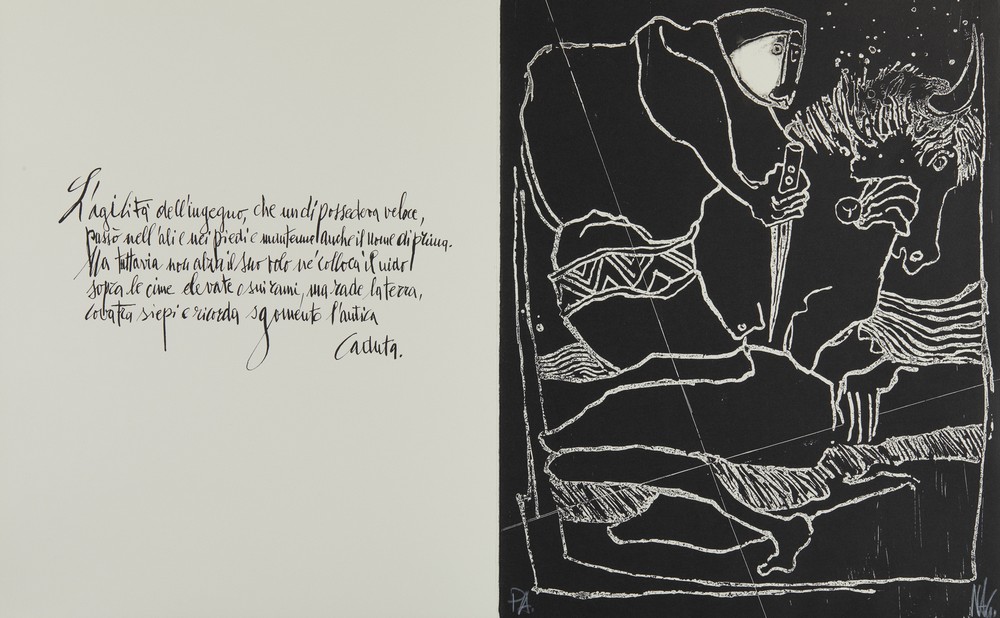 L'agilità dell'ingegno, che un dì possedeva veloce,
passò nell'ali e nei piedi e mantenne anche il nome di prima.
Ma tuttavia non alza il suo volo né colloca il nido
sopra le cime elevate e sui rami, ma rade la terra,
cova tra siepi e ricorda sgomento l'antica
Caduta.
P.A.